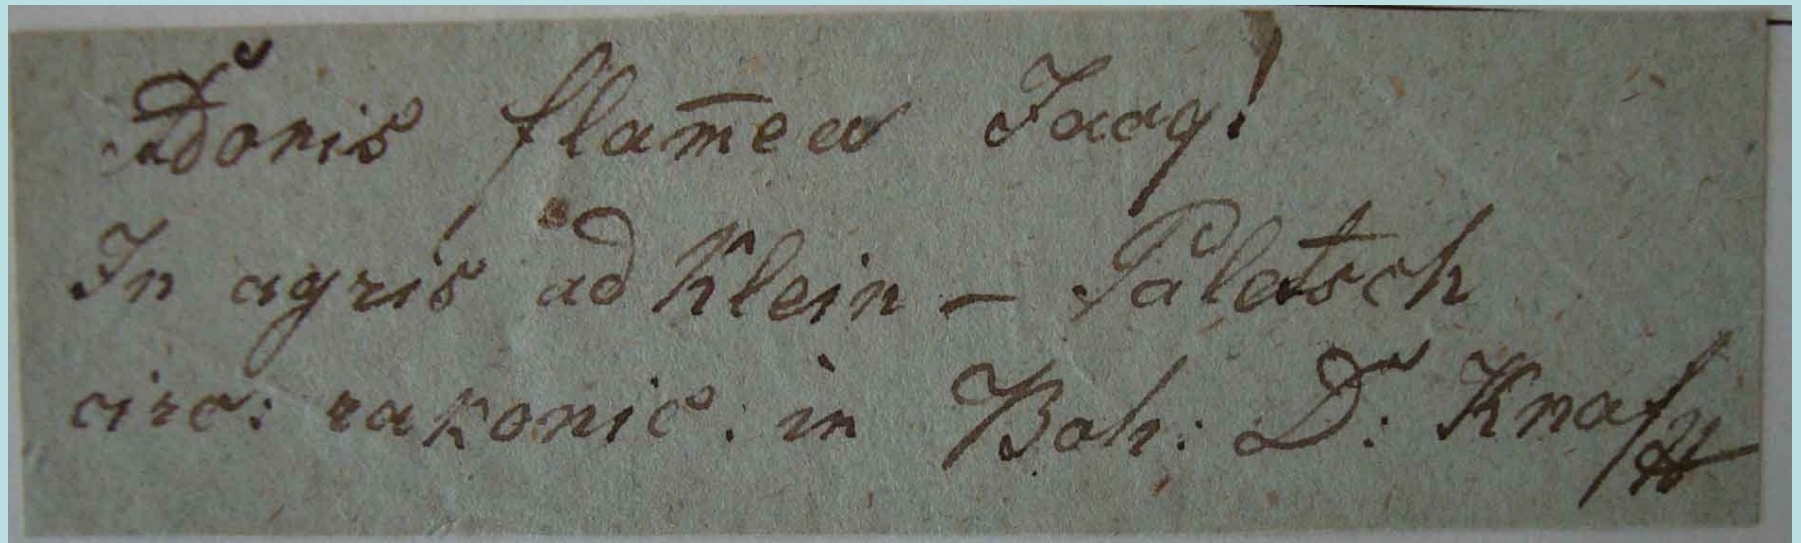 Adonis flam̅ea Jacq!
In agris ad Klein - Paletsch
circ: rakonic. in Boh: Dr: Knaf